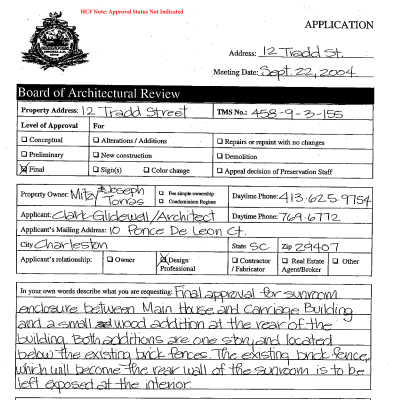 HCF Note: Approval Status Not Indicated
APPLICATION
Address: 12 Tradd St.
Meeting Date: Sept. 22, 2004
Board of Architectural Review
Property Address: 12 Tradd Street TMS No.: 458-9-3-155
Level of Approval For
□ Conceptual □ Alterations / Additions □ Repairs or repaint with no changes
□ Preliminary □ New construction □ Demolition
☒ Final □ Sign(s) □ Color change □ Appeal decision of Preservation Staff
Property Owner: Mitzi & Joseph Torras □ Fee simple ownership □ Condominium Regime Daytime Phone: 413.625.9754
Applicant: Clark Glidewell/Architect Daytime Phone: 769.6772
Applicant's Mailing Address: 10 Ponce De Leon Ct.
City Charleston State: SC Zip 29407
Applicant's relationship: □ Owner ☒ Design Professional □ Contractor / Fabricator □ Real Estate Agent/Broker □ Other
In your own words describe what you are requesting: Final approval for sunroom
enclosure between Main House and Carriage Building
and a small wood addition at the rear of the
building. Both additions are one story and located
below the existing brick fences. The existing brick fence,
which will become the rear wall of the sunroom is to be
left exposed at the interior.